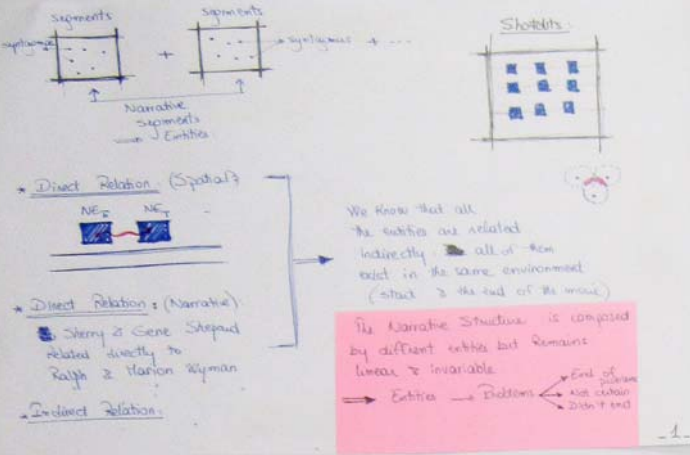 segments
segments
+
+ ---
Narrative
segments
→ Entities
Shortcuts:
* Direct Relation (Spatial)
NE NE
* Direct Relation: (Narrative)
Sherry & Gene Shepard
related directly to
Ralph & Marion Wyman
* Indirect Relation:
We know that all
the entities are related
indirectly. all of them
exist in the same environment
(start & the end of the movie)
The Narrative Structure is composed
by diffrent entities but Remains
linear & invariable
⇒ Entities → Problems → End of
→ Not certain
→ Didn't end
_1_